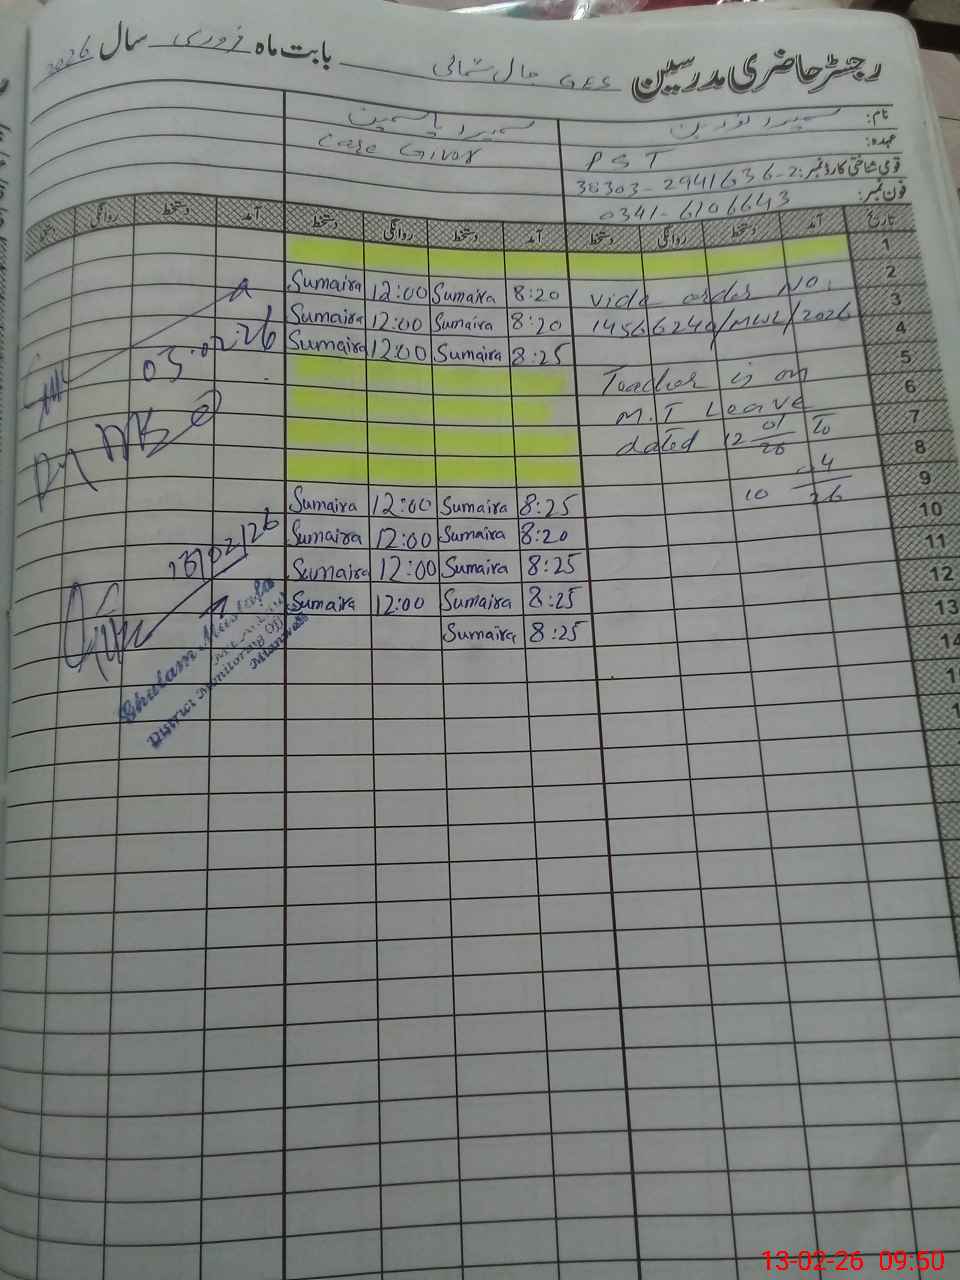 رجسٹر حاضری مدرسین GES جال شمالی بابت ماہ فروری سال 2026
نام: سمیرا نورین سمیرا یاسمین
عہدہ: PST Care Giver
قومی شناختی کارڈ نمبر: 38303-2941636-2
فون نمبر: 0341-6106643
تاریخ آمد دستخط روانگی دستخط آمد دستخط روانگی دستخط آمد دستخط روانگی دستخط
1
2 Vide order No. 8:20 Sumaira 12:00 Sumaira
3 14566240/MWL/2026 8:20 Sumaira 12:00 Sumaira
4 8:25 Sumaira 12:00 Sumaira
5 Teacher is on
6 M.T Leave
7 dated 12 01/26 To
8 10 4/26
9 8:25 Sumaira 12:00 Sumaira
10 8:20 Sumaira 12:00 Sumaira
11 8:25 Sumaira 12:00 Sumaira
12 8:25 Sumaira 12:00 Sumaira
13 8:25 Sumaira
14
03.02.26
13/02/26
Ghulam Mustafa
District Monitoring Officer
Mianwali
13-02-26 09:50